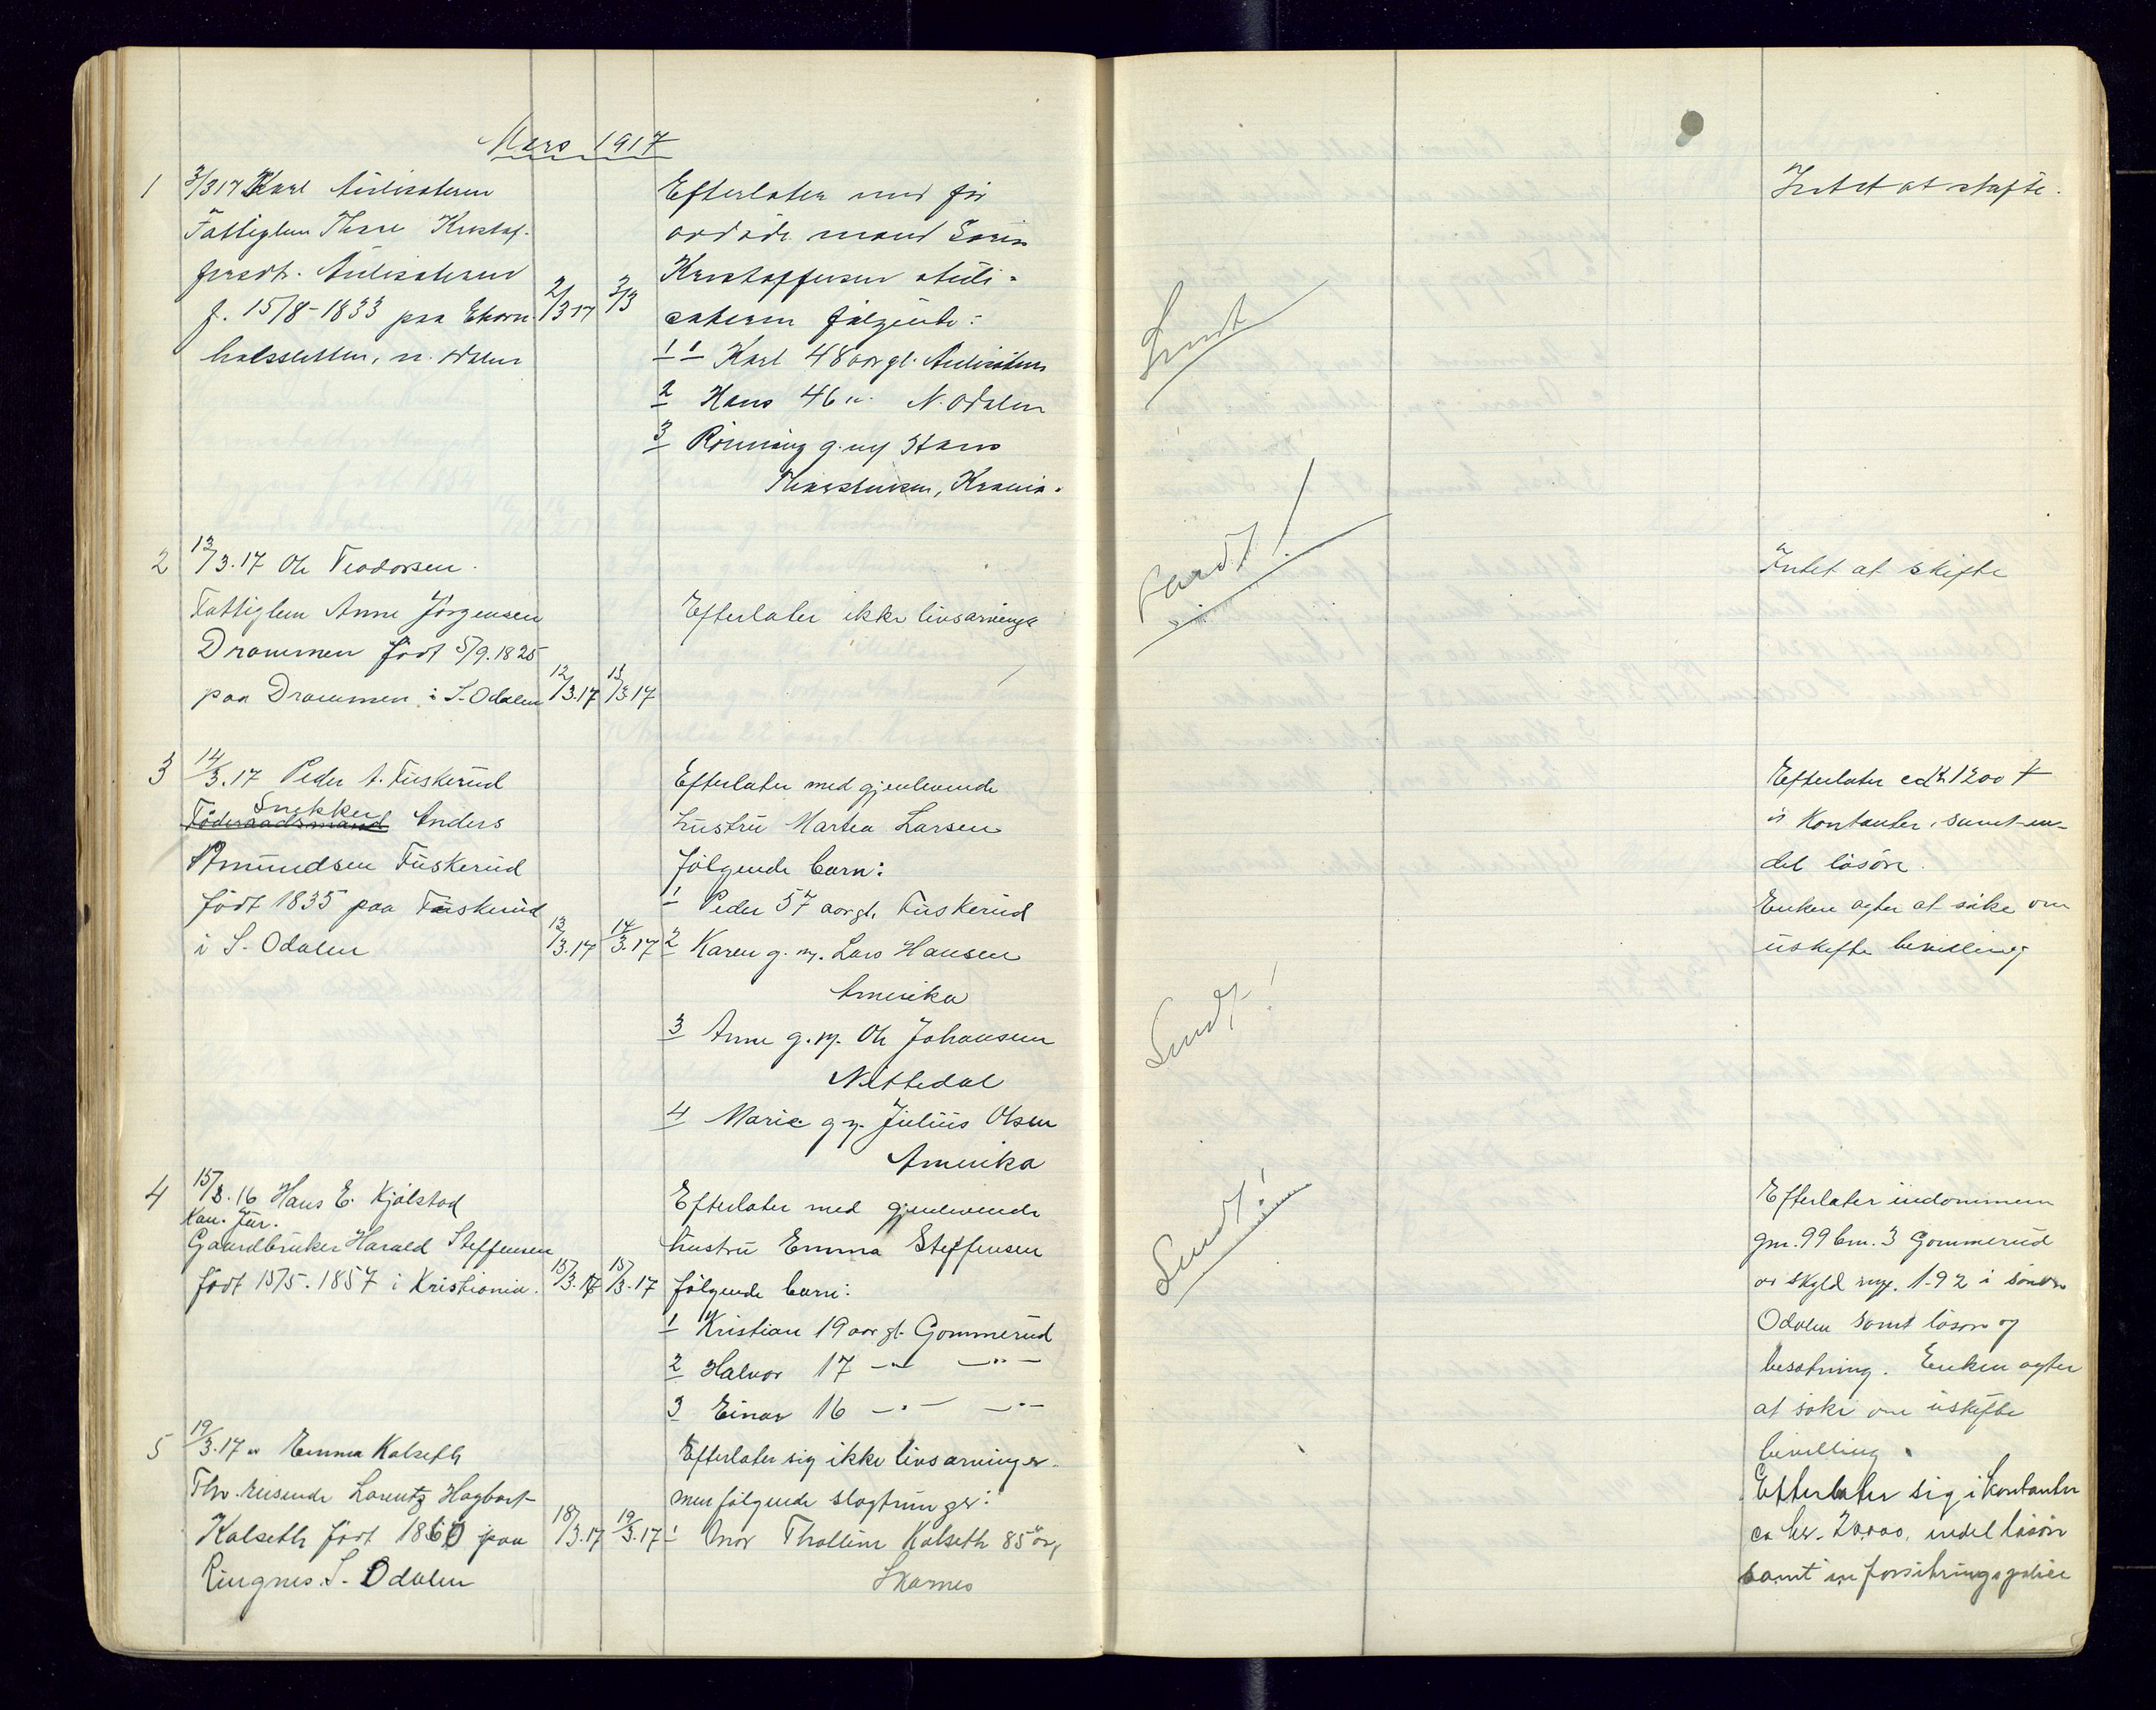 Mars 1917
1
3/3 17 Karl
Fattiglem Kristof-
fersdt.
f. 15/8-1833 paa Ekorn-
holssletten, n. Odalen
2/3 17
3/3
Efterlater med før
avdøde mand Søren
Kristoffersen
følgende:
1 Karl 48 aar gl.
2 Hans 46 " N. Odalen
3 Rønnaug g. m. Hans
Thorstensen, Krania.
Sendt
Intet at skifte.
2
13/3.17 Ole Teodorsen.
Fattiglem Anne Jørgensen
Drammen født 5/9.1825
paa Drammen i S. Odalen
12/3.17
13/3.17
Efterlater ikke livsarvinge
Sendt!
Intet at skifte
3
14/3.17 Peder A. Fuskerud
Snekker
Føderaadsmand Anders
Amundsen Fuskerud
født 1835 paa Fuskerud
i S. Odalen
13/3.17
14/3.17
Efterlater med gjenlevende
hustru Martea Larsen
følgende barn:
1 Peder 57 aar gl. Fuskerud
2 Karen g. m. Lars Hansen
Amerika
3 Anne g. m. Ole Johansen
Nittedal
4 Marie g. m. Julius Olsen
Amerika
Sendt!
Efterlater ca Kr 1200
i Kontanter, samt en-
del løsøre.
Enken agter at søke om
uskifte bevilling
4
15/3.16 Hans E. Kjølstad
Kan. Jur.
Gaardbruker Harald Steffensen
født 15/5.1857 i Kristiania.
15/3.17
15/3.17
Efterlater med gjenlevende
hustru Emma Steffensen
følgende barn:
1 Kristian 19 aar gl. Gommerud
2 Halvor 17 -"- -"-
3 Einar 16 -"- -"-
Sendt!
Efterlater eiendommen
gnr. 99 bnr. 3 Gommerud
av skyld 1.92 i søndre
Odalen samt løsøre og
besætning. Enken agter
at søke om uskifte
bevilling.
5
19/3.17 Emma Kalseth
Hagbart
Kalseth født 1860 paa
Ringnes S. Odalen
18/3.17
19/3.17
Efterlater sig ikke livsarvinger
men følgende slægtninger:
1 Mor Thalline Kalseth 85 aar
Skarnes
Efterlater sig i kontanter
ca kr. 20,000, endel løsøre
samt en forsikringspolice